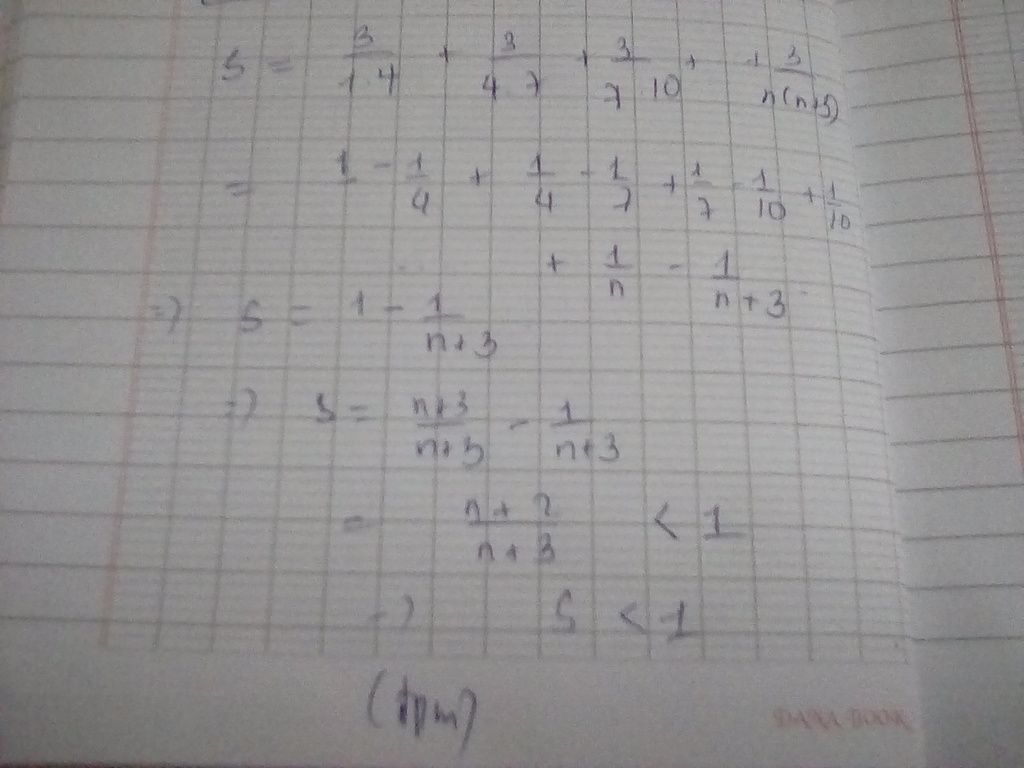 S = 3/1.4 + 3/4.7 + 3/7.10 + + 3/n(n+3)
= 1 - 1/4 + 1/4 - 1/7 + 1/7 - 1/10 + 1/10
+ 1/n - 1/n+3
=) S = 1 - 1/n+3
=) S = n+3/n+3 - 1/n+3
= n+2/n+3 < 1
=) S < 1
(đpcm)
DATA BOOK